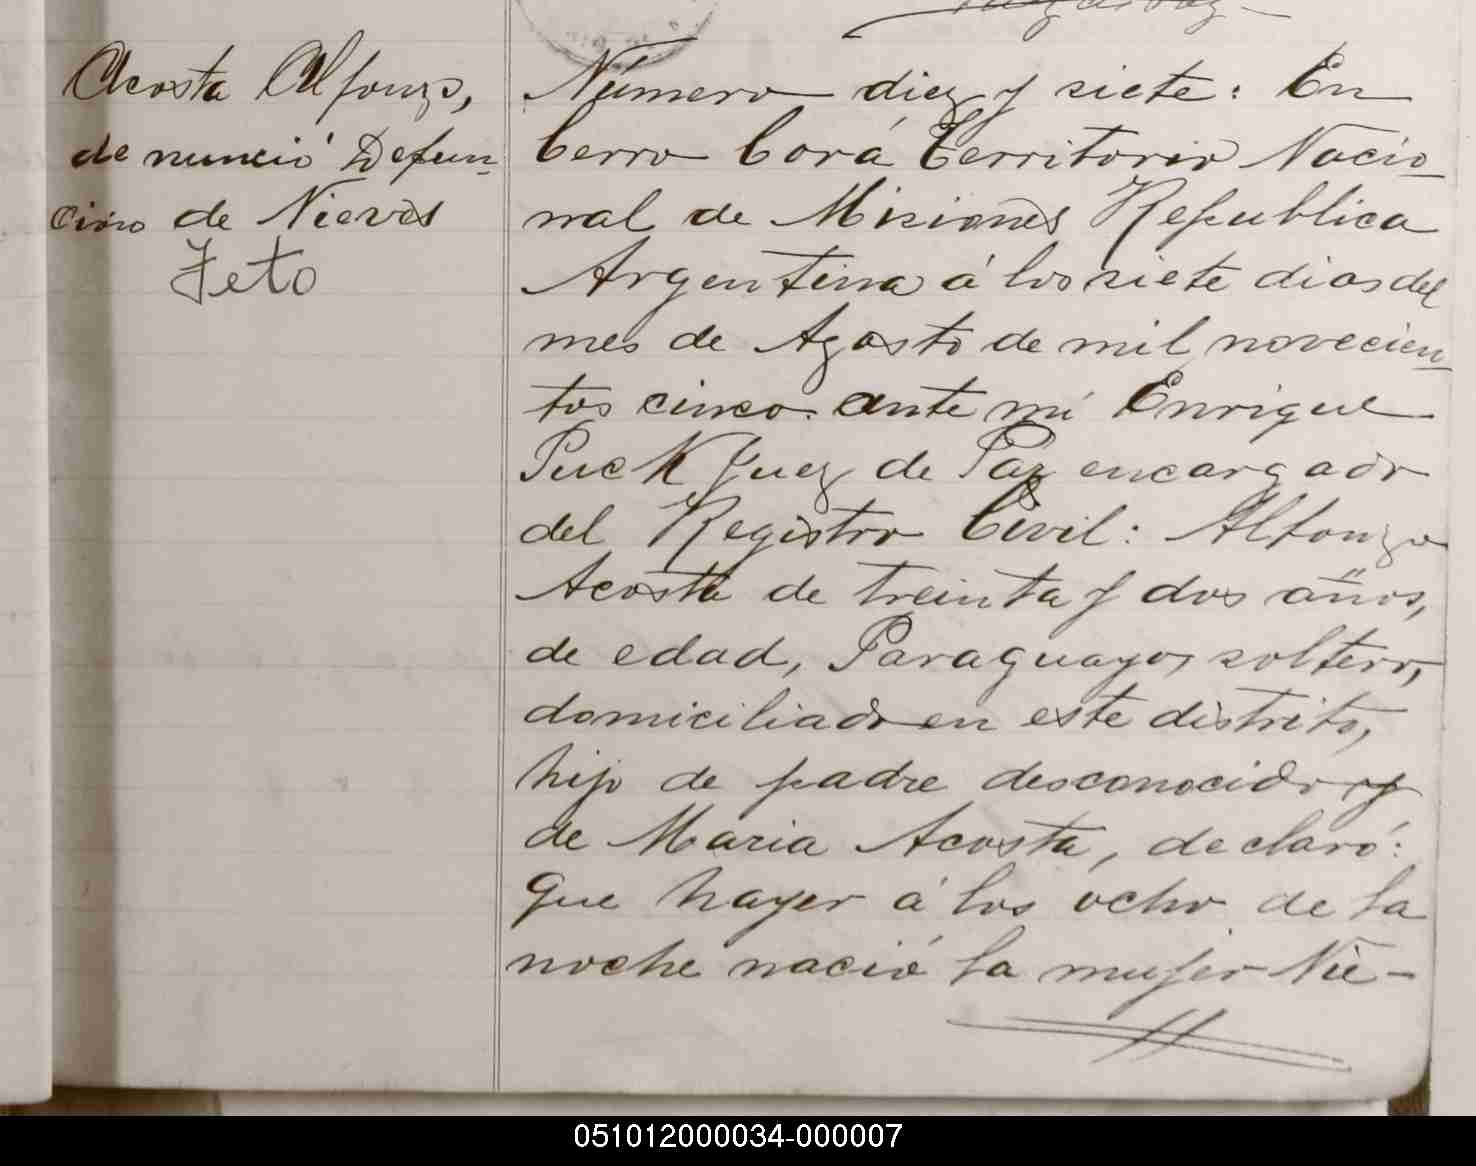 Acosta Alfonzo,
de nunció Defun-
ción de Nieves
Feto
Número diez y siete: En
Cerro Corá Territorio Nacio-
nal de Misiones Republica
Argentina á los siete dias del
mes de Agosto de mil novecien-
tos cinco. ante mi Enrique
Puck Juez de Paz encargado
del Registro Civil: Alfonzo
Acosta de treinta y dos años,
de edad, Paraguayo, soltero,
domiciliado en este distrito,
hijo de padre desconocido y
de Maria Acosta, declaró:
Que hayer á las ocho de la
noche nació la mujer Nie-
051012000034-000007